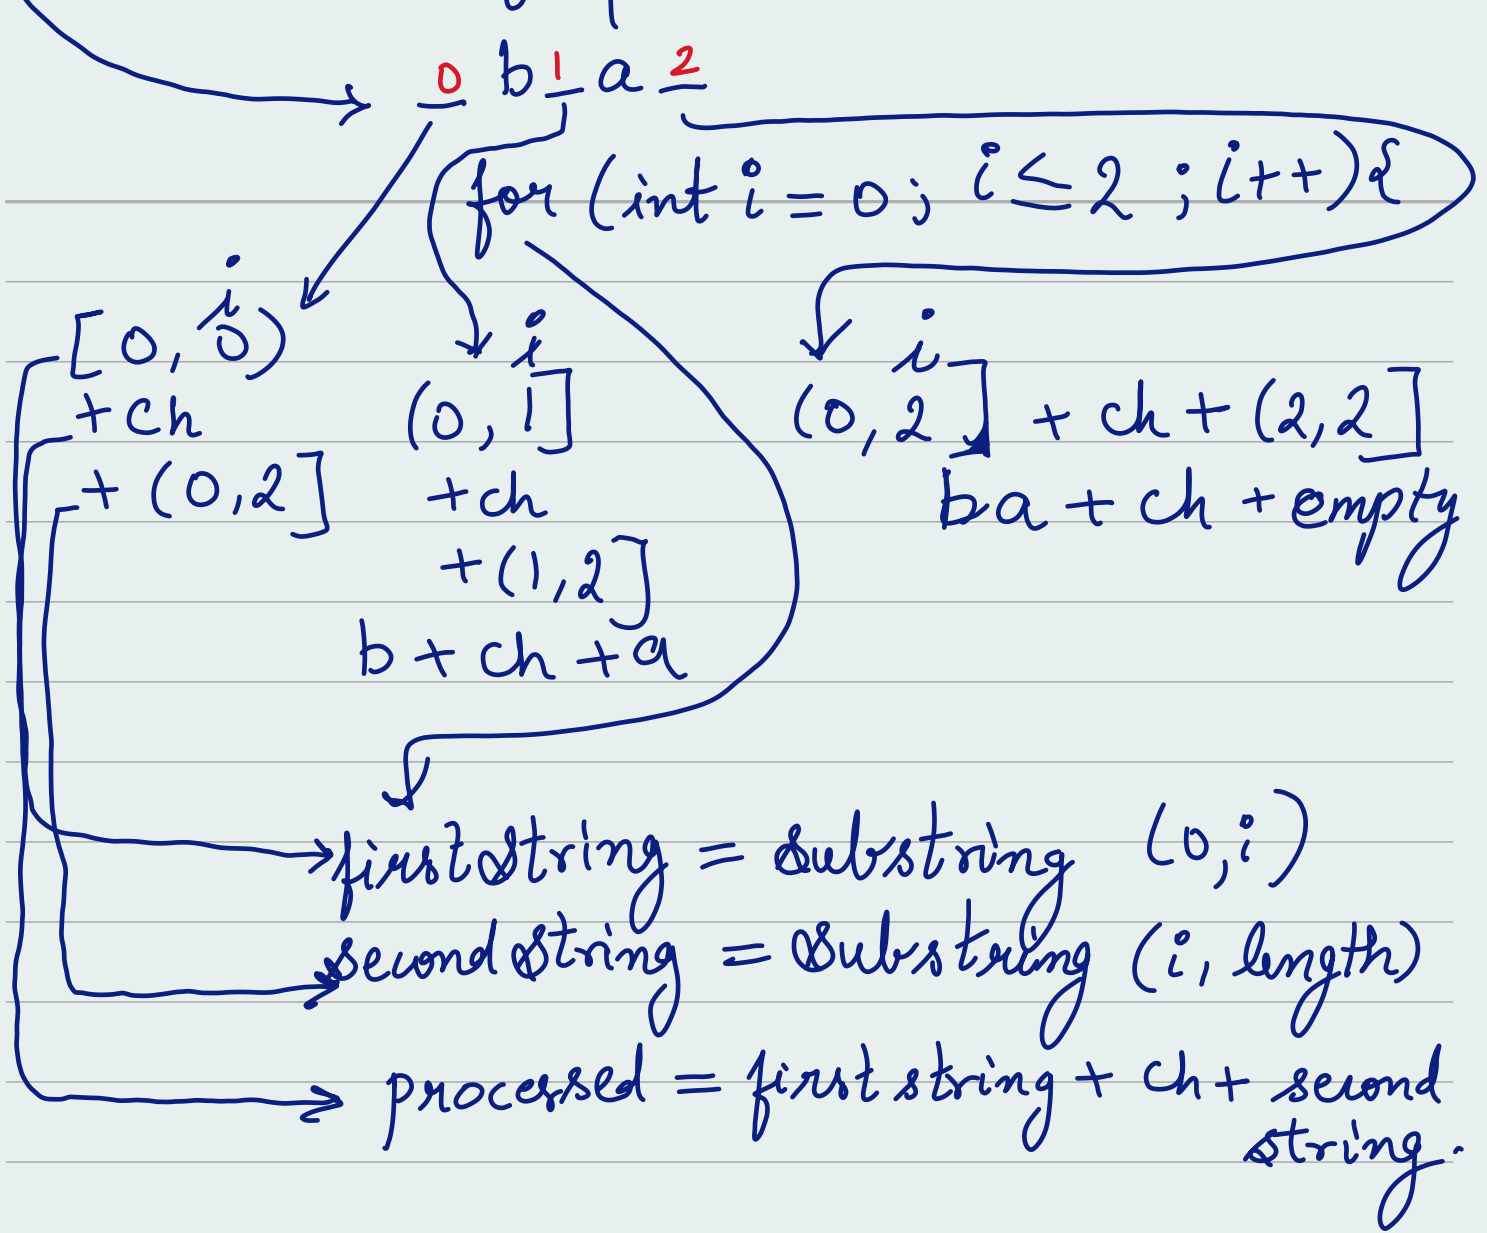 0 b 1 a 2
for (int i = 0; i ≤ 2 ; i++) {
i
[0, 0)
+ ch
+ (0,2]
i
(0, 1]
+ ch
+ (1,2]
b + ch + a
i
(0, 2] + ch + (2,2]
ba + ch + empty
firstString = substring (0,i)
secondString = Substring (i, length)
processed = first string + ch + second
string.